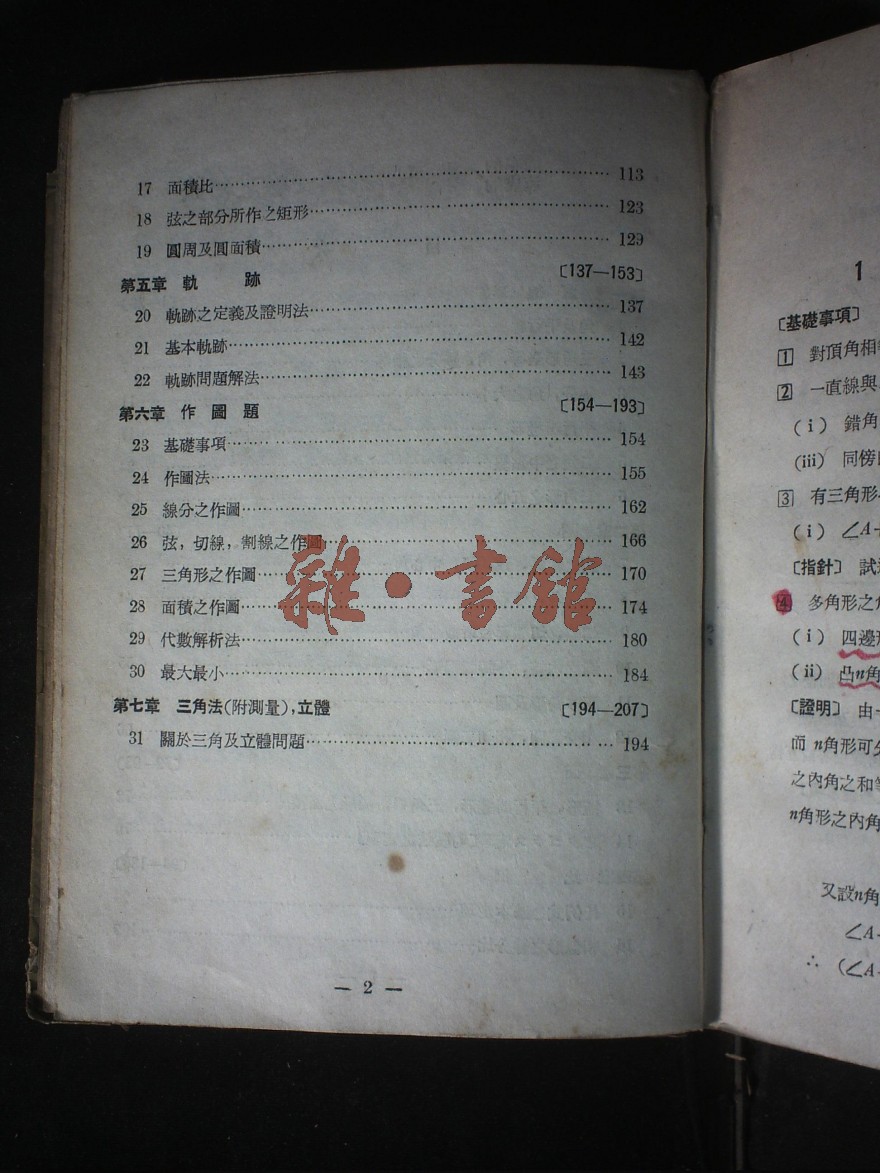 17 面積比 113
18 弦之部分所作之矩形 123
19 圓周及圓面積 129
第五章 軌 跡 〔137—153〕
20 軌跡之定義及證明法 137
21 基本軌跡 142
22 軌跡問題解法 143
第六章 作圖題 〔154—193〕
23 基礎事項 154
24 作圖法 155
25 線分之作圖 162
26 弦，切線，割線之作圖 166
27 三角形之作圖 170
28 面積之作圖 174
29 代數解析法 180
30 最大最小 184
第七章 三角法(附測量),立體 〔194—207〕
31 關於三角及立體問題 194
— 2 —
雜·書館
1
〔基礎事項〕
1 對頂角相
2 一直線與
(i) 錯角
(iii) 同傍
3 有三角形
(i) ∠A
〔指針〕 試
4 多角形之
(i) 四邊
(ii) 凸n角
〔證明〕 由
而 n角形可
之內角之和
n角形之內角
又設n角
∠A
∴ (∠A